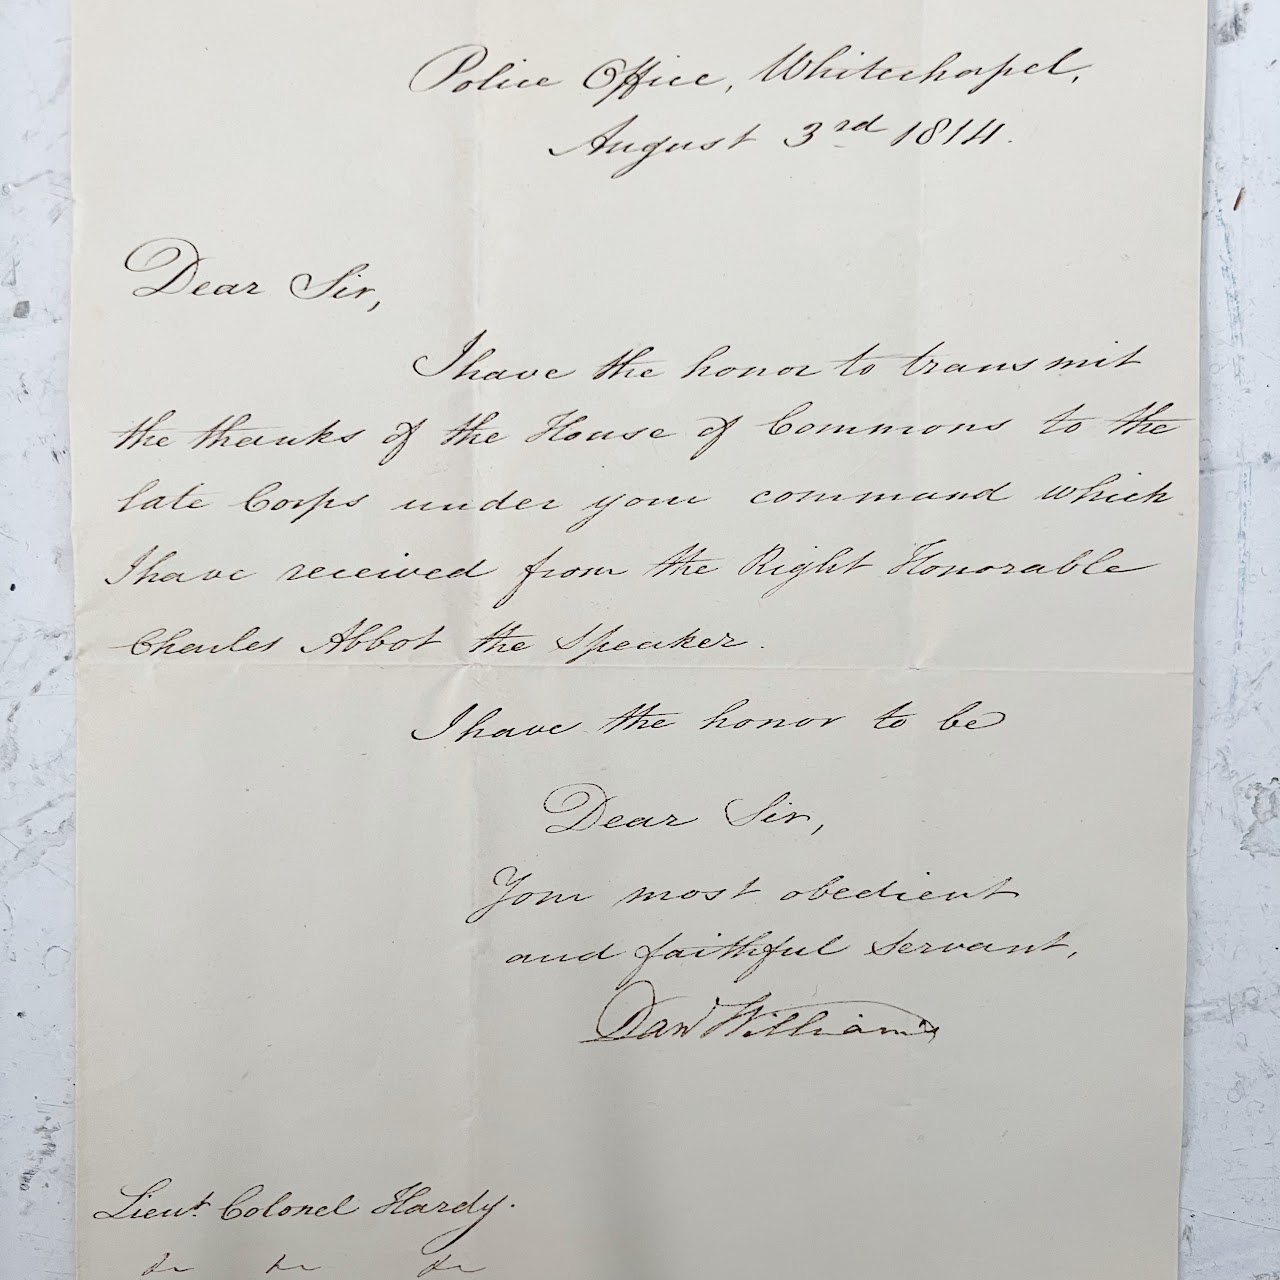 Police Office, Whitechapel,
August 3rd 1814.
Dear Sir,
I have the honor to transmit
the thanks of the House of Commons to the
late Corps under your command which
I have received from the Right Honorable
Charles Abbot the Speaker.
I have the honor to be
Dear Sir,
Your most obedient
and faithful Servant,
Danl Williams
Lieut. Colonel Hardy.